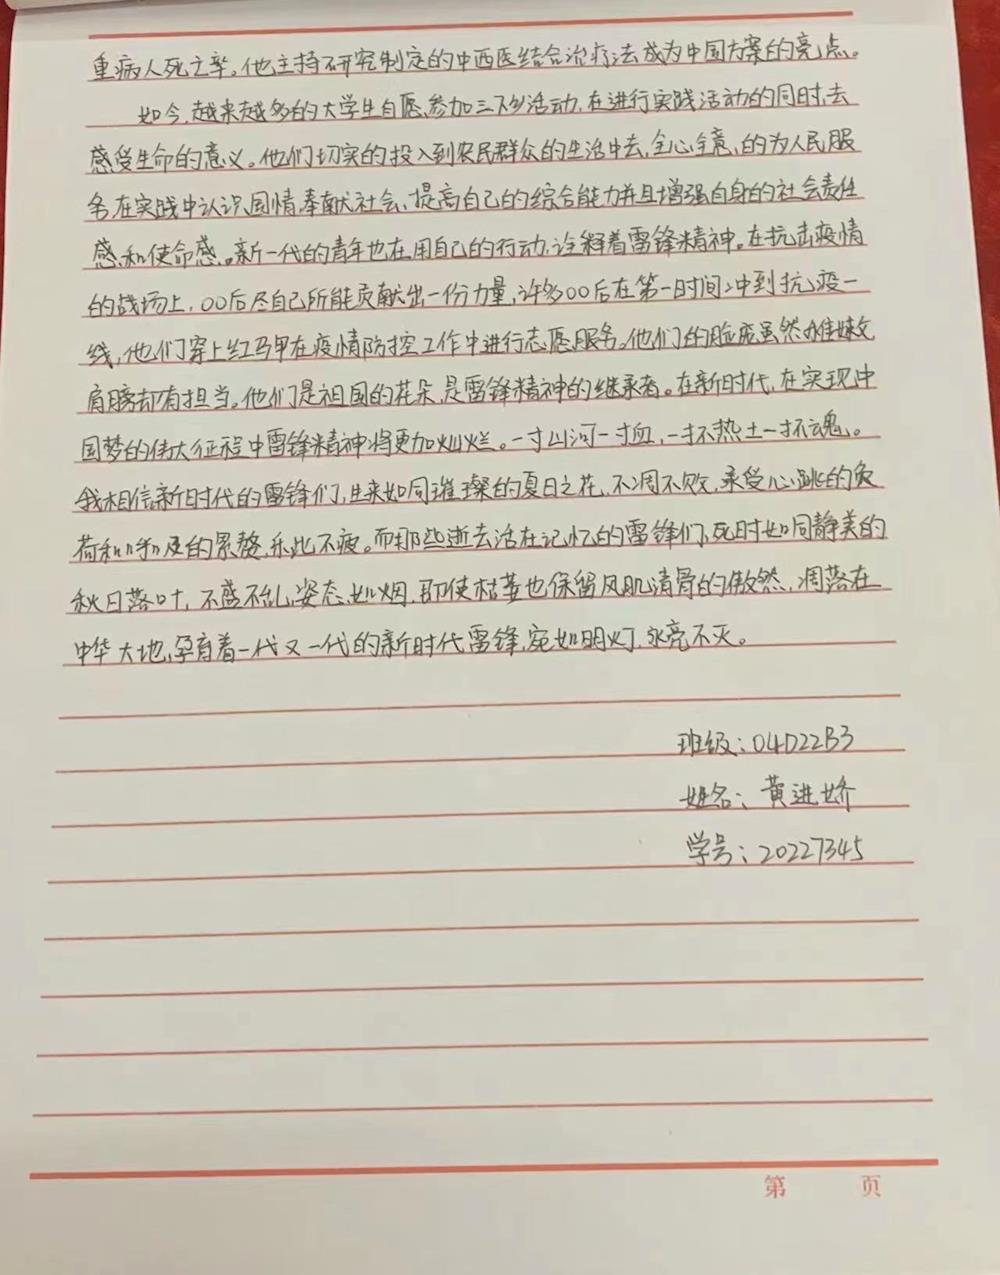 重病人死亡率。他主持研究制定的中西医结合治疗法成为中国方案的亮点。
如今,越来越多的大学生自愿参加三下乡活动,在进行实践活动的同时,去
感受生命的意义。他们切实的投入到农民群众的生活中去,全心全意的为人民服
务,在实践中认识国情,奉献社会,提高自己的综合能力并且增强自身的社会责任
感和使命感。新一代的青年也在用自己的行动,诠释着雷锋精神。在抗击疫情
的战场上,00后尽自己所能贡献出一份力量,许多00后在第一时间冲到抗疫一
线,他们穿上红马甲在疫情防控工作中进行志愿服务。他们的脸庞虽然稚嫩
肩膀却有担当。他们是祖国的花朵,是雷锋精神的继承者。在新时代,在实现中
国梦的伟大征程中雷锋精神将更加灿烂。一寸山河一寸血,一抔热土一抔魂。
我相信新时代的雷锋们,生来如同璀璨的夏日之花,不凋不败,承受心跳的负
荷和呼吸的累赘,乐此不疲。而那些逝去活在记忆的雷锋们,死时如同静美的
秋日落叶,不盛不乱,姿态如烟,即使枯萎也保留风肌清骨的傲然,凋落在
中华大地,孕育着一代又一代的新时代雷锋,宛如明灯,永亮不灭。
班级:04D22B3
姓名:黄进娇
学号:20227345
第 页